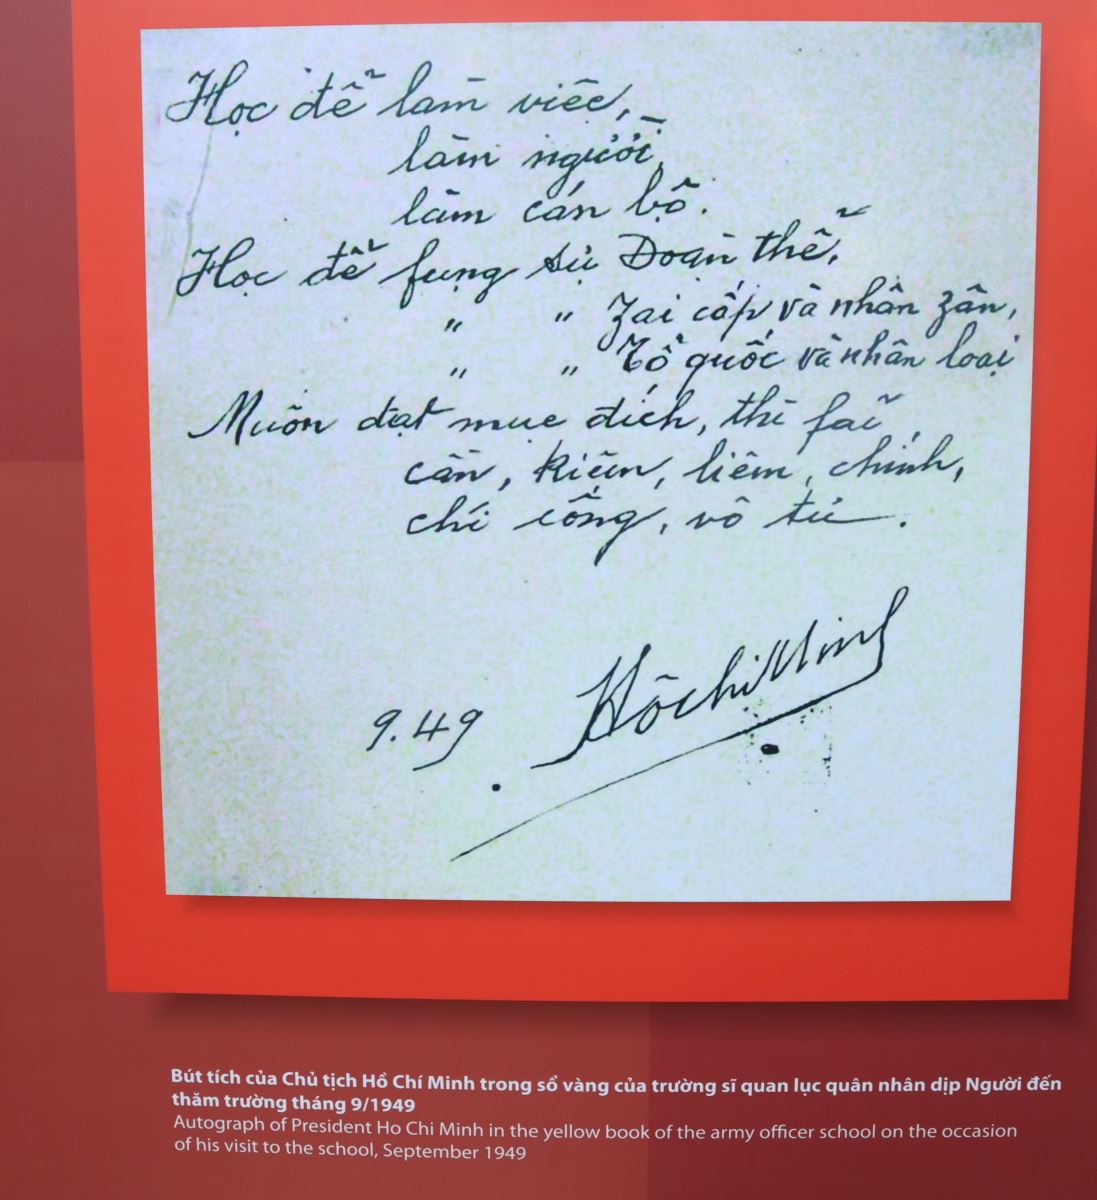 Học để làm việc,
làm người,
làm cán bộ.
Học để fụng sự Đoàn thể,
" " Zai cấp và nhân zân,
" " Tổ quốc và nhân loại
Muốn đạt mục đích, thì fải
cần, kiệm, liêm, chính,
chí công, vô tư.
9.49 HồchíMinh
Bút tích của Chủ tịch Hồ Chí Minh trong sổ vàng của trường sĩ quan lục quân nhân dịp Người đến
thăm trường tháng 9/1949
Autograph of President Ho Chi Minh in the yellow book of the army officer school on the occasion
of his visit to the school, September 1949